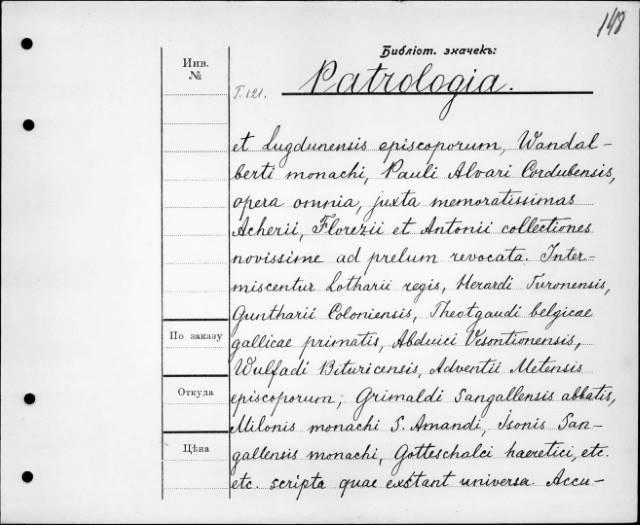 148
Библіот. значекъ:
Инв.
№
Т. 121.
Patrologia.
et Lugdunensis episcoporum, Wandal-
berti monachi, Pauli Alvari Cordubensis,
opera omnia, juxta memoratissimas
Acherii, Florezii et Antonii collectiones
novissime ad prelum revocata. Inter-
miscentur Lotharii regis, Herardi Turonensis,
Guntharii Coloniensis, Theotgaudi belgicae
По заказу
gallicae primatis, Abduici Vesontionensis,
Wulfadi Bituricensis, Adventii Metensis
Откуда
episcoporum; Grimaldi Sangallensis abbatis,
Milonis monachi S. Amandi, Isonis San-
Цѣна
gallensis monachi, Gotteschalci haeretici, etc.
etc. scripta quae exstant universa. Accu-